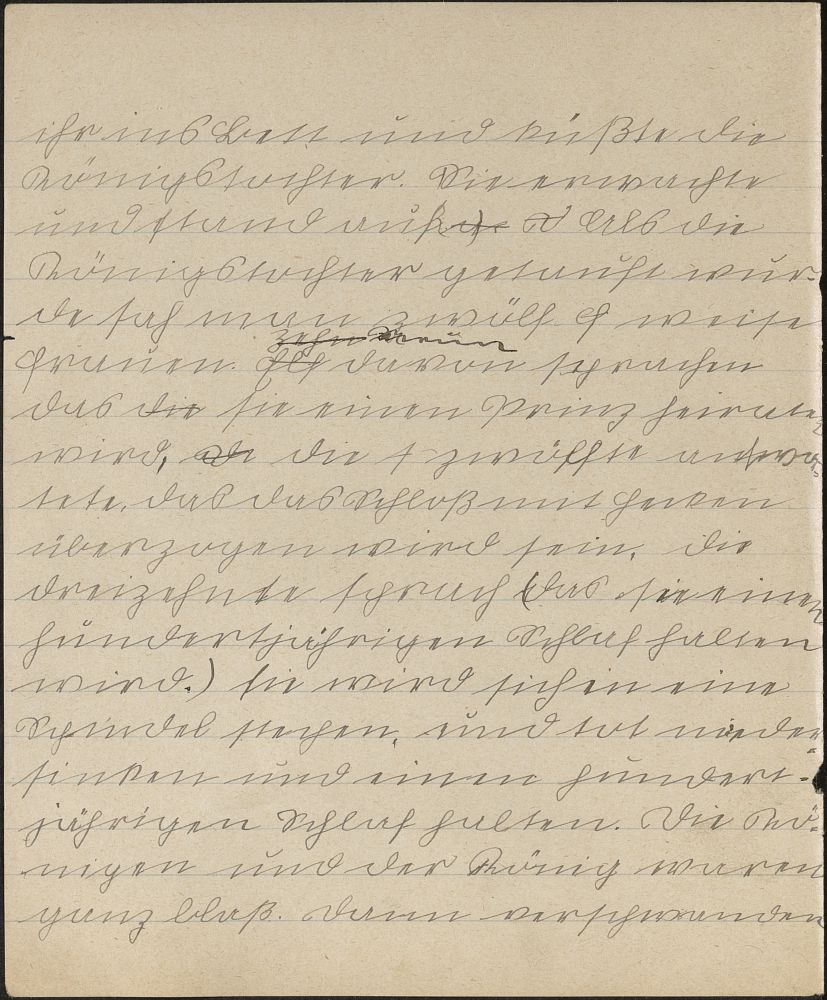 ihr ins Bett und küßte die
Königstochter. Sie erwachte
und stand auf. Als die
Königstochter getauft wur-
de sah man zwölf weise
zehn
Frauen. Elf davon sprachen
das die sie einen Prinz heiraten
wird, die zwölfte antwor-
tete, das das Schloß mit Hecken
überzogen wird sein. die
dreizehnte sprach (das sie einen
hundertjährigen Schlaf halten
wird.) sie wird sich in eine
Spindel stechen, und tot nieder
sinken und einen hundert-
jährigen Schlaf halten. Die Kö-
nigen und der König waren
ganz blaß. Dann verschwanden